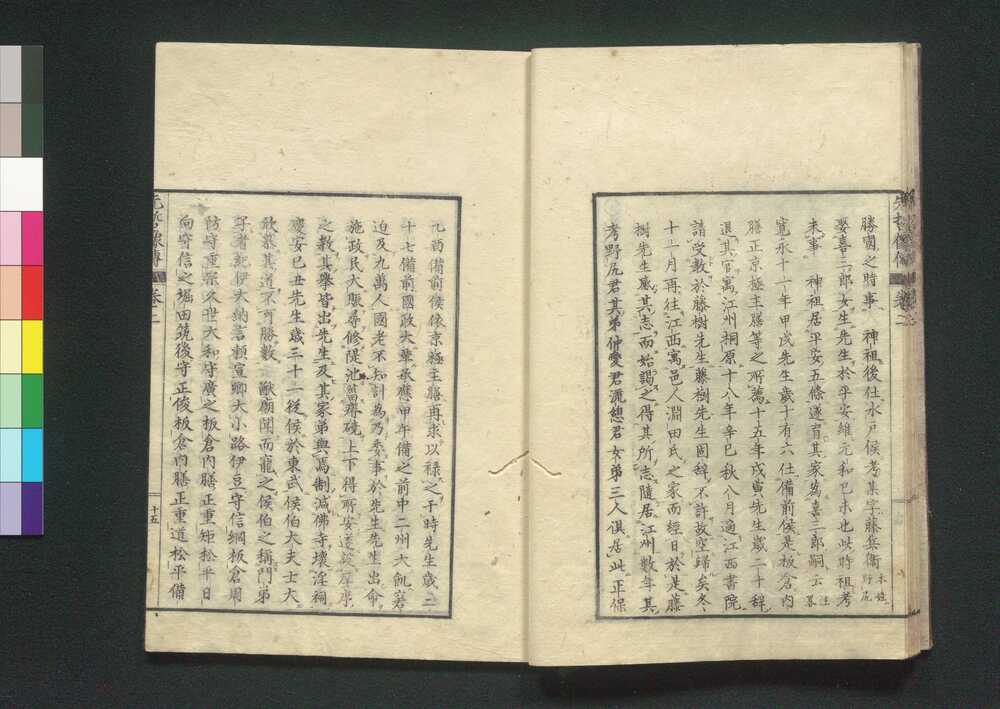 先哲像傳 卷二
勝國之時事 神祖後仕水戸侯考某字藤兵衞本姓野尻
娶喜三郎女生先生於平安維元和己未也此時祖考
未事 神祖居平安五條遂育其家為喜三郎嗣云
寛永十一年甲戌先生歳十有六仕備前侯是板倉内
膳正京極主膳等之所薦十五年戊寅先生歳二十辭
退其官寓江州桐原十八年辛巳秋八月過江西書院
請受教於藤樹先生藤樹先生固辭不許故空歸矣冬
十一月再往江西寓邑人淵田氏之家而經日於是藤
樹先生感其志而始謁之得其所志隨居江州數年其
考野尻君其弟仲愛君流憩君女弟三人俱居此正保
乙酉備前侯依京極主膳再求以祿之于時先生歳二
十七備前國政大華承應甲午備之前中二州大飢窘
迫及九萬人國老不知計為乃委事於先生先生出命
施政民大賑尋修隄池 磽上下得所安這設庠序
之教其擧皆出先生及其家弟與焉制減佛寺壞淫祠
慶安己丑先生歳三十一從侯於東武侯伯大夫士大
欣慕其道不可勝數 猷廟聞而寵之侯伯之稱門弟
子者紀伊大納言頼宣卿大小路伊豆守信綱板倉周
防守重宗久世大和守廣之板倉内膳正重矩松平日
向守信之堀田筑後守正俊板倉内膳正重道松平備
先哲像傳 卷二
十五